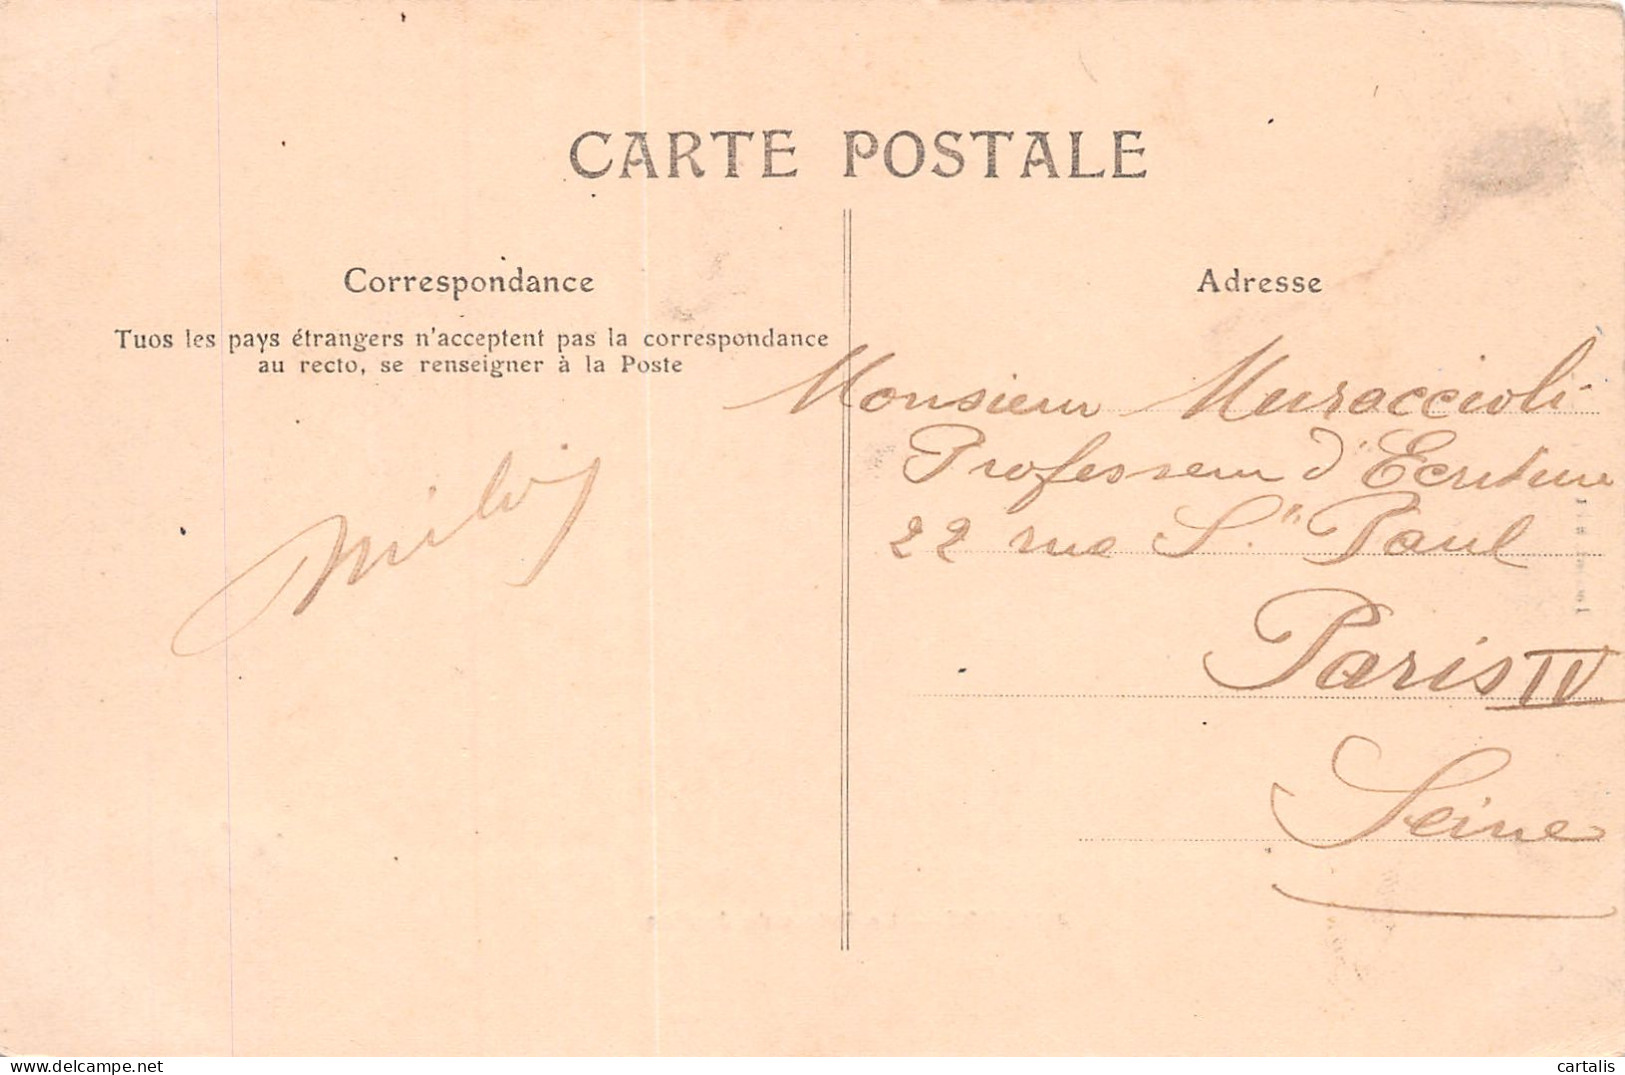 CARTE POSTALE
Correspondance
Tuos les pays étrangers n'acceptent pas la correspondance
au recto, se renseigner à la Poste
Adresse
Monsieur Muraccioli
Professeur d'Ecriture
22 rue St Paul
Paris IV
Seine
cartalis